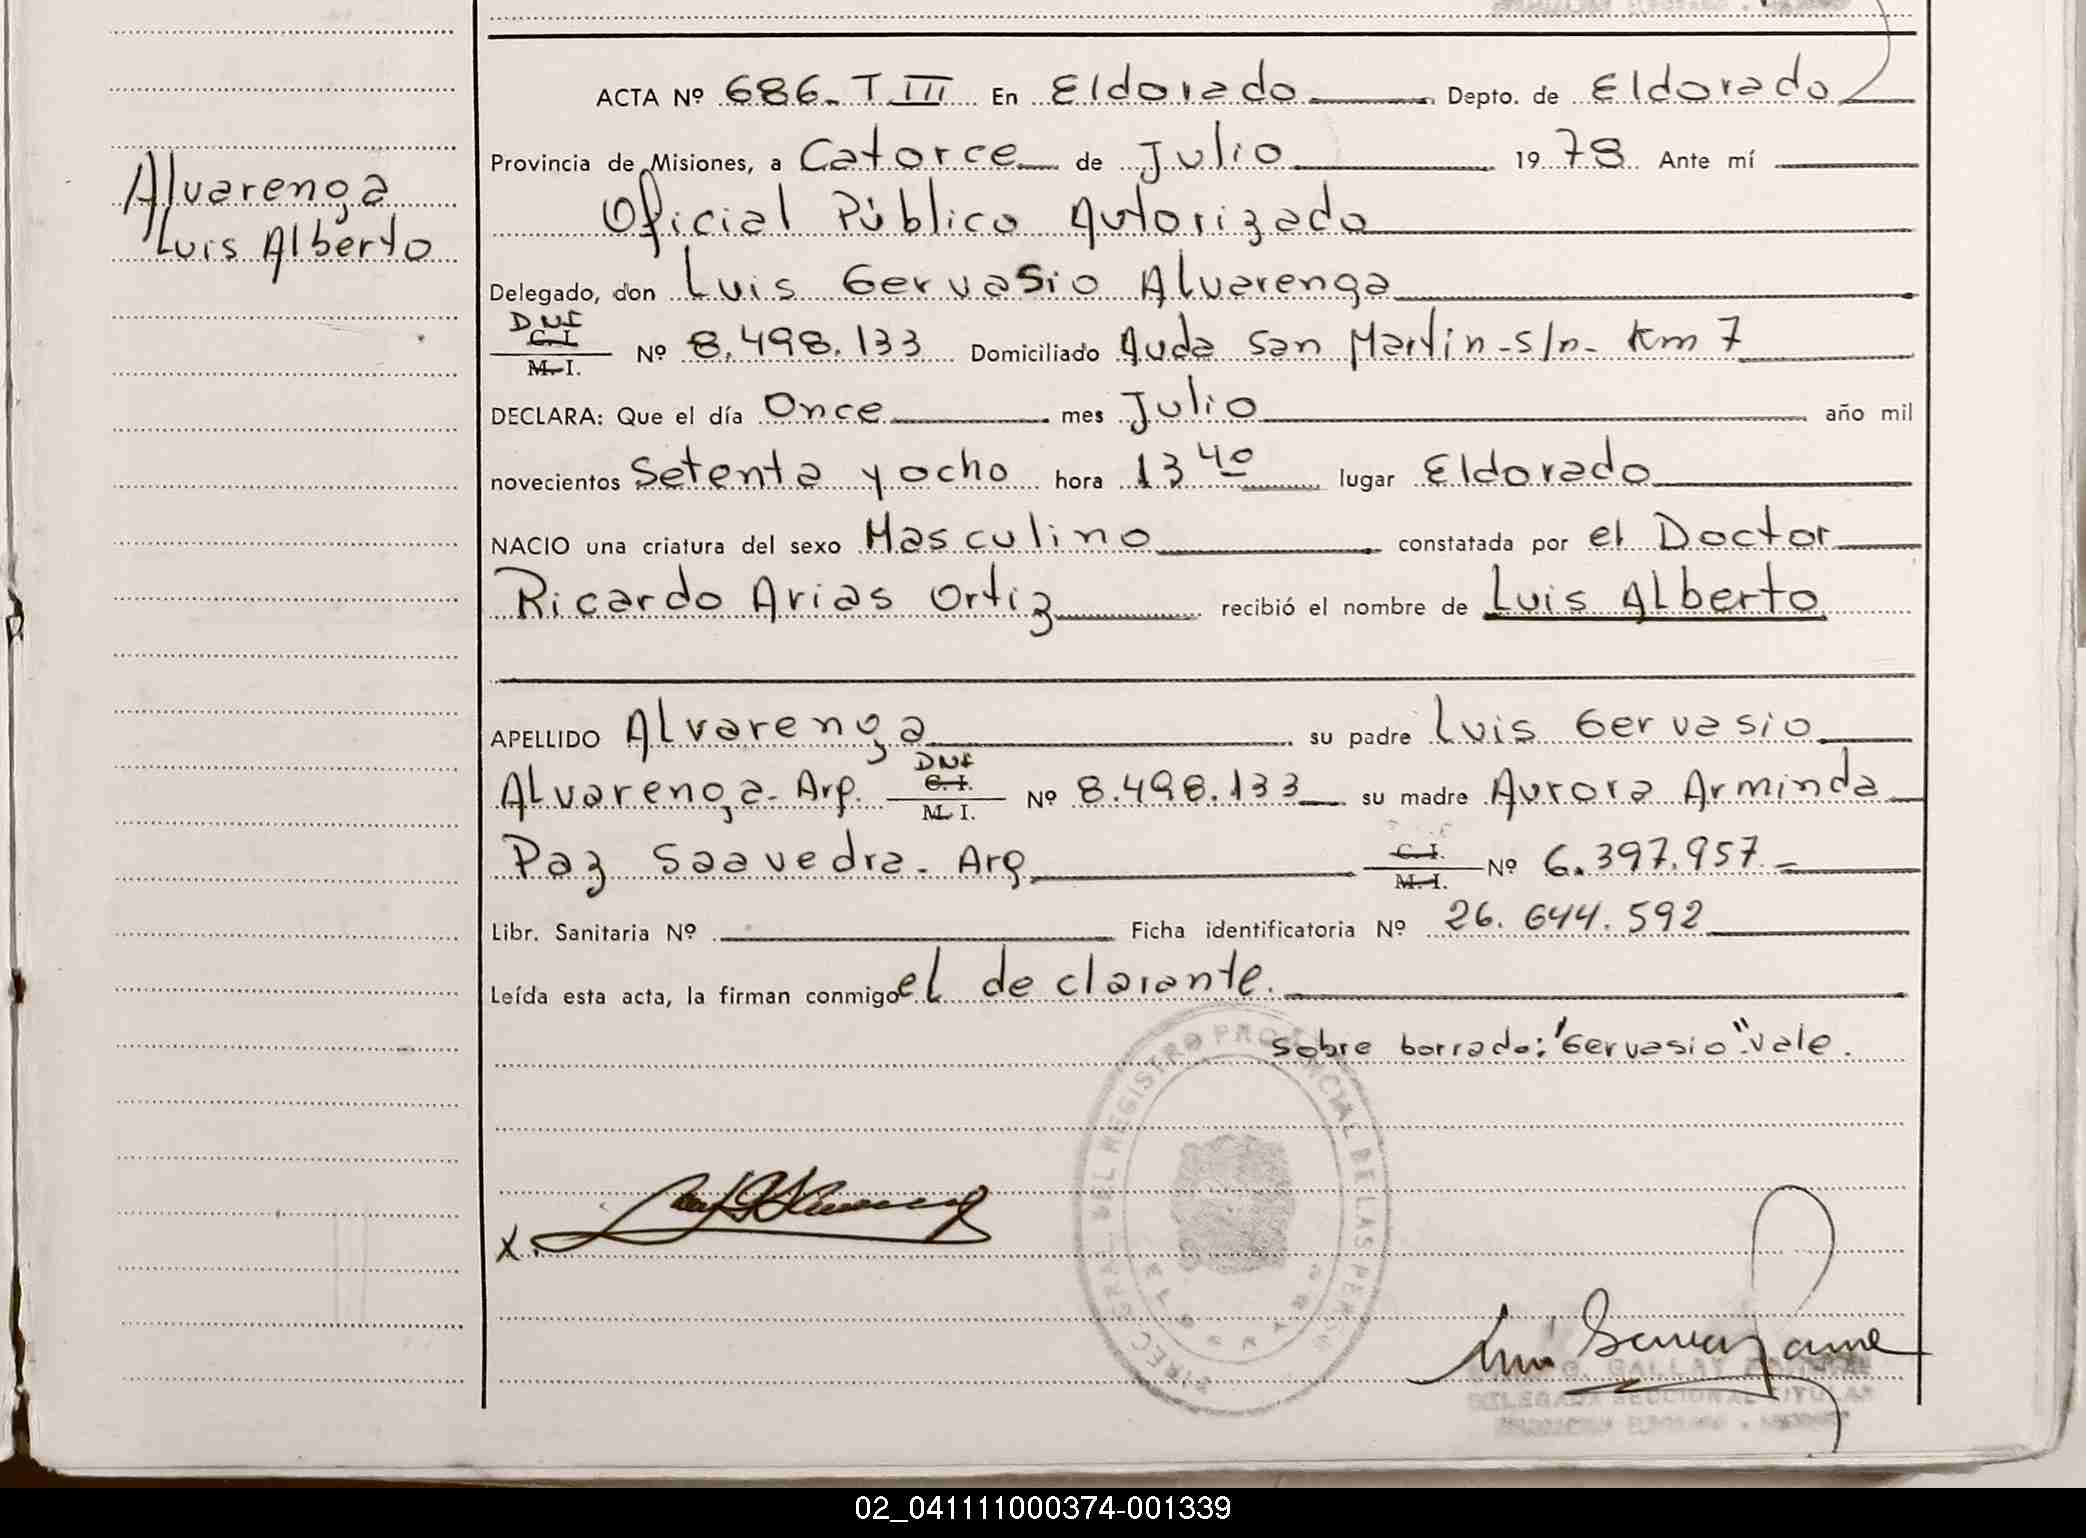 ACTA Nº 686. T III En Eldorado Depto. de Eldorado
Provincia de Misiones, a Catorce de Julio 1978 Ante mí
Oficial Público Autorizado
Delegado, don Luis Gervasio Alvarenga
DNI
C. I.
M. I.
Nº 8.498.133 Domiciliado Avda San Martin - s/n - Km 7
DECLARA: Que el día Once mes Julio año mil
novecientos Setenta y ocho hora 13 40 lugar Eldorado
NACIO una criatura del sexo Masculino constatada por el Doctor
Ricardo Arias Ortiz recibió el nombre de Luis Alberto
APELLIDO Alvarenga su padre Luis Gervasio
Alvarenga - Arg. DNI C. I. M. I. Nº 8.498.133 su madre Aurora Arminda
Paz Saavedra - Arg C. I. M. I. Nº 6.397.957
Libr. Sanitaria Nº Ficha identificatoria Nº 26.644.592
Leída esta acta, la firman conmigo el declarante.
Sobre borrado: "Gervasio" vale.
Alvarenga
Luis Alberto
X.
REGISTRO PROVINCIAL DE LAS PERSONAS
ELDORADO
G. GALLAY
DELEGADA SECCIONAL TITULAR
02_041111000374-001339